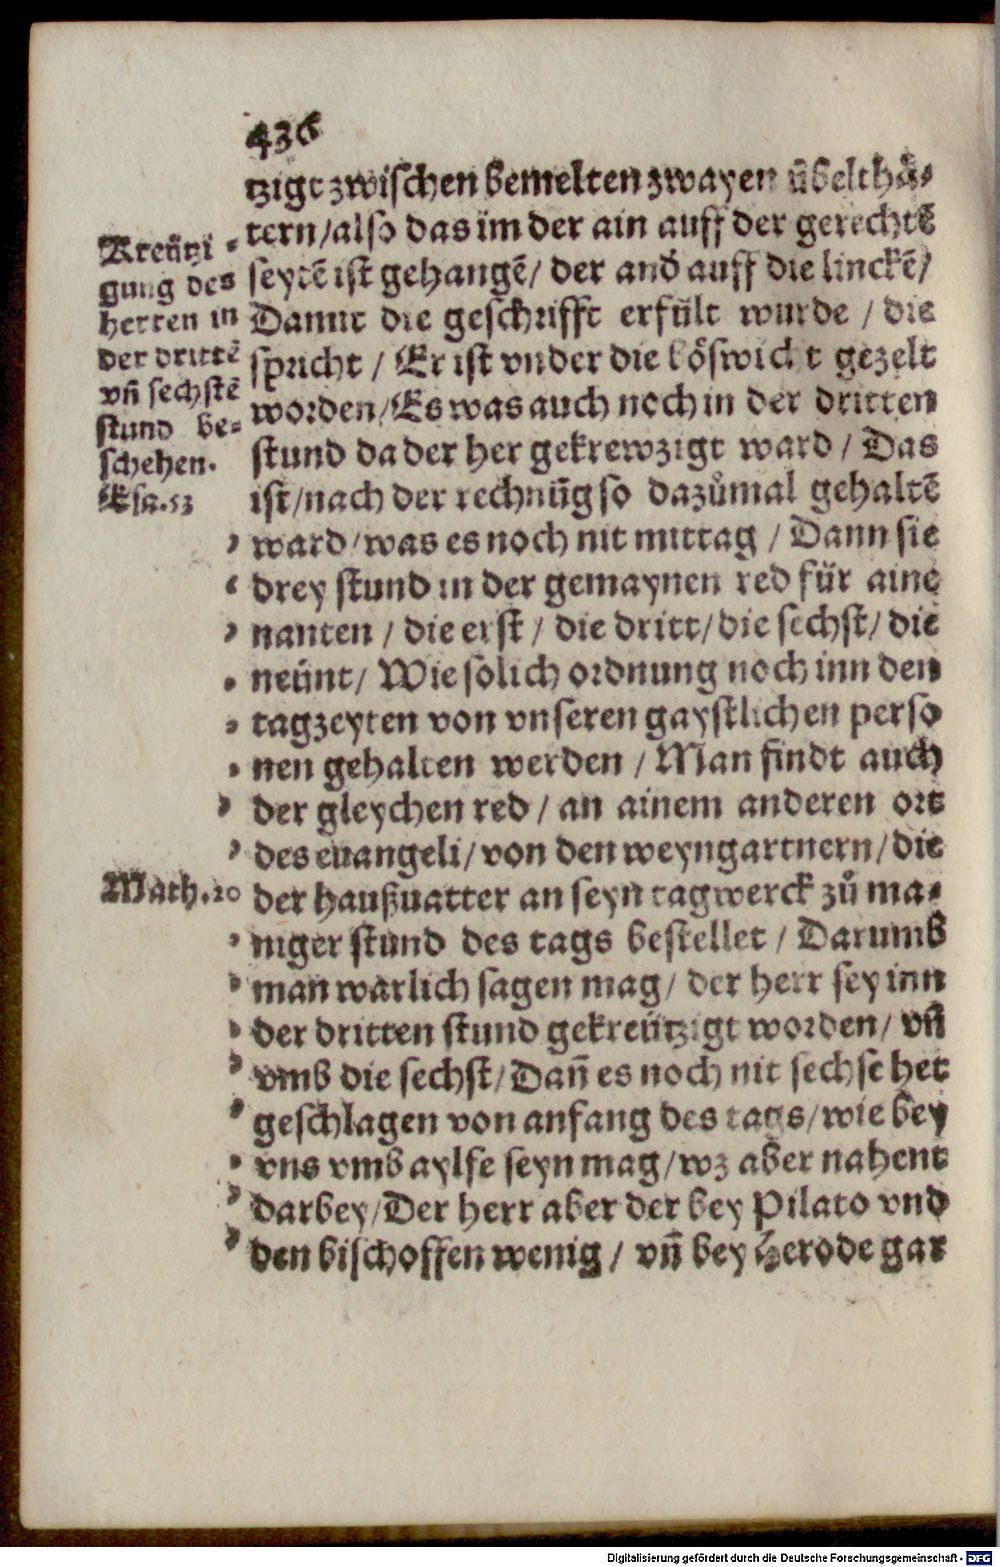 436
tzigt zwischen bemelten zwayen übelthä⸗
tern/also das im der ain auff der gerechtē
seytē ist gehangē/ der and̄ auff die linckē/
Damit die geschrifft erfült wurde / die
spricht / Er ist vnder die böswicht gezelt
worden/Es was auch noch in der dritten
stund da der her gekrewzigt ward / Das
ist/nach der rechnūg so dazůmal gehaltē
ward/was es noch nit mittag / Dann sie
drey stund in der gemaynen red für aine
nanten / die erst / die dritt/die sechst/ die
neünt/ Wie solich ordnung noch inn den
tagzeyten von vnseren gaystlichen perso
nen gehalten werden / Man findt auch
der gleychen red / an ainem anderen ort
des euangeli/von den weyngartnern/die
der haußuatter an seyn tagwerck zů ma⸗
niger stund des tags bestellet / Darumb
man warlich sagen mag/ der herr sey inn
der dritten stund gekreützigt worden/ vn̄
vmb die sechst/Dan̄ es noch nit sechse het
geschlagen von anfang des tags/wie bey
vns vmb aylfe seyn mag/wz aber nahent
darbey/Der herr aber der bey Pilato vnd
den bischoffen wenig / vn̄ bey Herode gar
Kreützi⸗
gung des
herren in
der drittē
vn̄ sechstē
stund be⸗
schehen.
Esa.53
Math.20
Digitalisierung gefördert durch die Deutsche Forschungsgemeinschaft - DFG